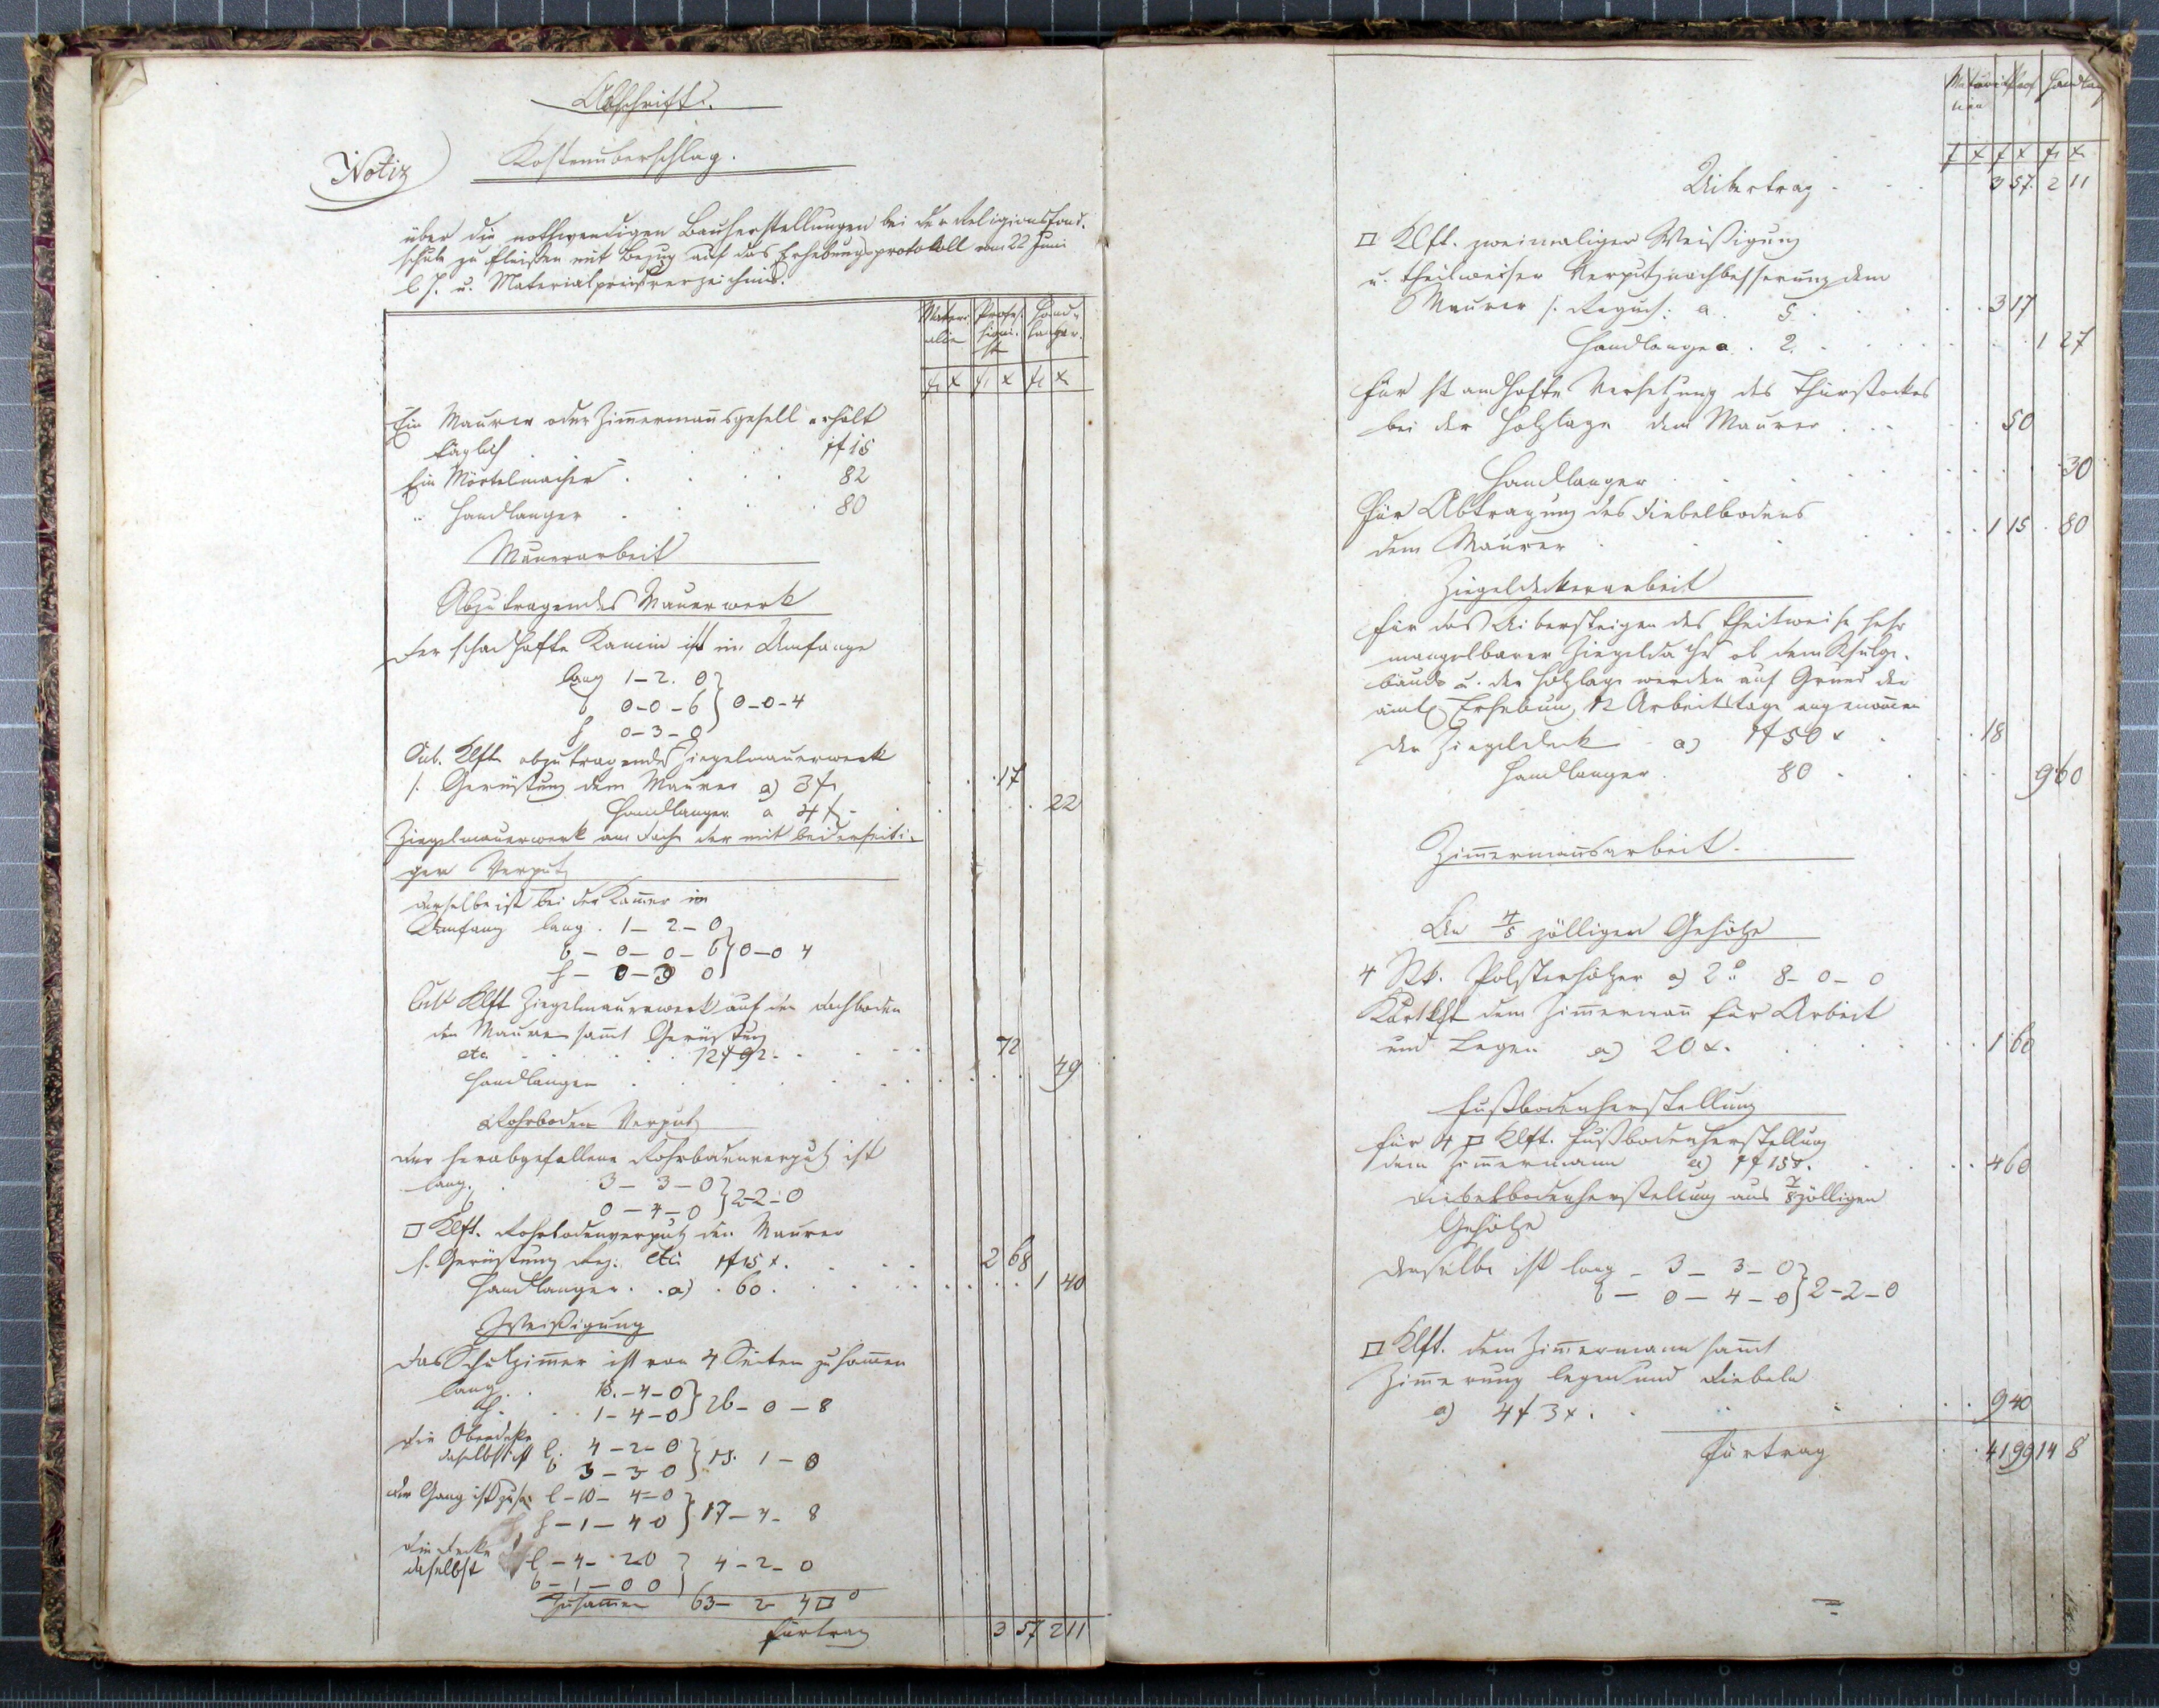 Abschrift.
Notiz
Kostenuberschlag.
über die nothwendigen Bauherstellungen bei der Religionsfond.
schule zu Fleißen mit Bezug auf das Erhebungsprotokoll vom 22 Juni
l. J. u. Materialpreisverzeichnis.
Materi- Profes- Hand-
alie sioni- langer.
st
fl x fl x fl x
Ein Maurer oder Zimmermansgesell erhält
täglich 1f 15
Ein Mörtelmacher 82
" Handlanger 80
Maurerarbeit
Abzutragendes Mauerwerk
Der schadhafte Kamin ist im Umfange
lang 1-2. 0
b 0-0-6 } 0-0-4
h 0-3-0
Cub. Klft. abzutragendes Ziegelmauerwerk
s. Gerüstung dem Maurer a) 3f 17
Handlanger a 4f 22
Ziegelmauerwerk am Dach der mit beiderseiti-
ger Verputz
derselbe ist bei der Kammer im
Umfang lang. 1-2-0
b-0-0-6 } 0-0 4
h-0-3 0
Cub Klft Ziegelmauerwerk auf den Dachboden
den Maurer sammt Gerüstung
etc. 12f92 72
Handlanger 49
Rohrboden Verputz
der herabgefallene Rohrbodenverputz ist
lang. 3-3-0
b 0-4-0 } 2-2-0
□ Klft. Rohrbodenverputz den Maurer
s. Gerüstung etc 1f15 x. 2 68
Handlanger. a) 60. 1 40
Weißigung
Das Schulzimmer ist von 4 Seiten zusammen
lang. 15.-4-0
h. 1-4-0 } 26-0-8
Die Oberdecke
daselbst ist l. 4-2-0
b 3-3 0 } 15. 1-0
der Gang ist zus: l-10-4-0
h-1-4 0 } 17-4-8
die Decke
daselbst l-4-2 0
b-1-0 0 } 4-2-0
Zusammen 63-2 4 □°
Fürtrag 3 57 2 11
Materia Prof Handlang
lien
f x f x fl x
Uibertrag 3 57. 2 11
□ Klft. zweimaliger Weißigung
u. theilweiser Verputznachbesserung dem
Maurer a. 5 3 17
Handlanger a. 2. 1 27
Für standhafte Versetzung des Thürstockes
bei der Holzlage dem Maurer 50
Handlanger 30
Für Abtragung des Diebelbodens
dem Maurer 1 15 80
Ziegeldeckerarbeit
Für das Uibersteigen des theilweise sehr
mangelbaren Ziegeldaches ob dem Schulge-
bäude u. der Holzlage werden auf Grund der
amtl Erhebung 12 Arbeitstage angenommen
der Ziegeldeck a) 1f50 x 18
Handlanger 80 9 60
Zimmermansarbeit.
An 4/5 zölligen Gehölze
4 Stk. Polsterhölzer a) 2° 8-0-0
Kurtklft dem Zimmerman für Arbeit
und Legen a) 20 x. 1 60
Fußbodenherstellung
Für 4 □ Klft. Fußbodenherstellung
dem Zimmermann a) 1f15x. 4 60
Diebelbodenherstellung aus 7/8 zölligen
Gehölze
Derselbe ist lang-3-3-0
b-0-4-0 } 2-2-0
□ Klft. dem Zimmermann sammt
Zimmerung legen und Diebeln
a) 4f 3x. 9 40
Fürtrag 41 99 14 8